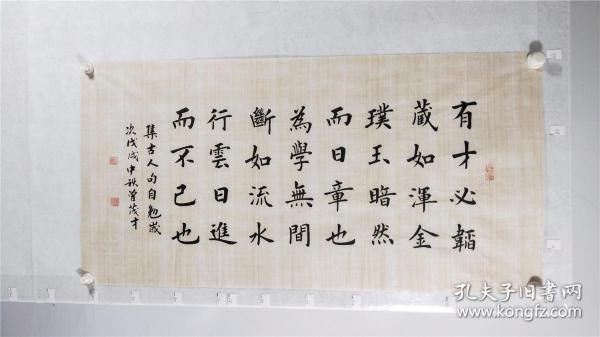 有才必韜
藏如渾金
璞玉暗然
而日章也
為學無間
斷如流水
行雲日進
而不已也
集古人句自勉歲
次戊戌中秋曾茂才
孔夫子旧书网
www.kongfz.com